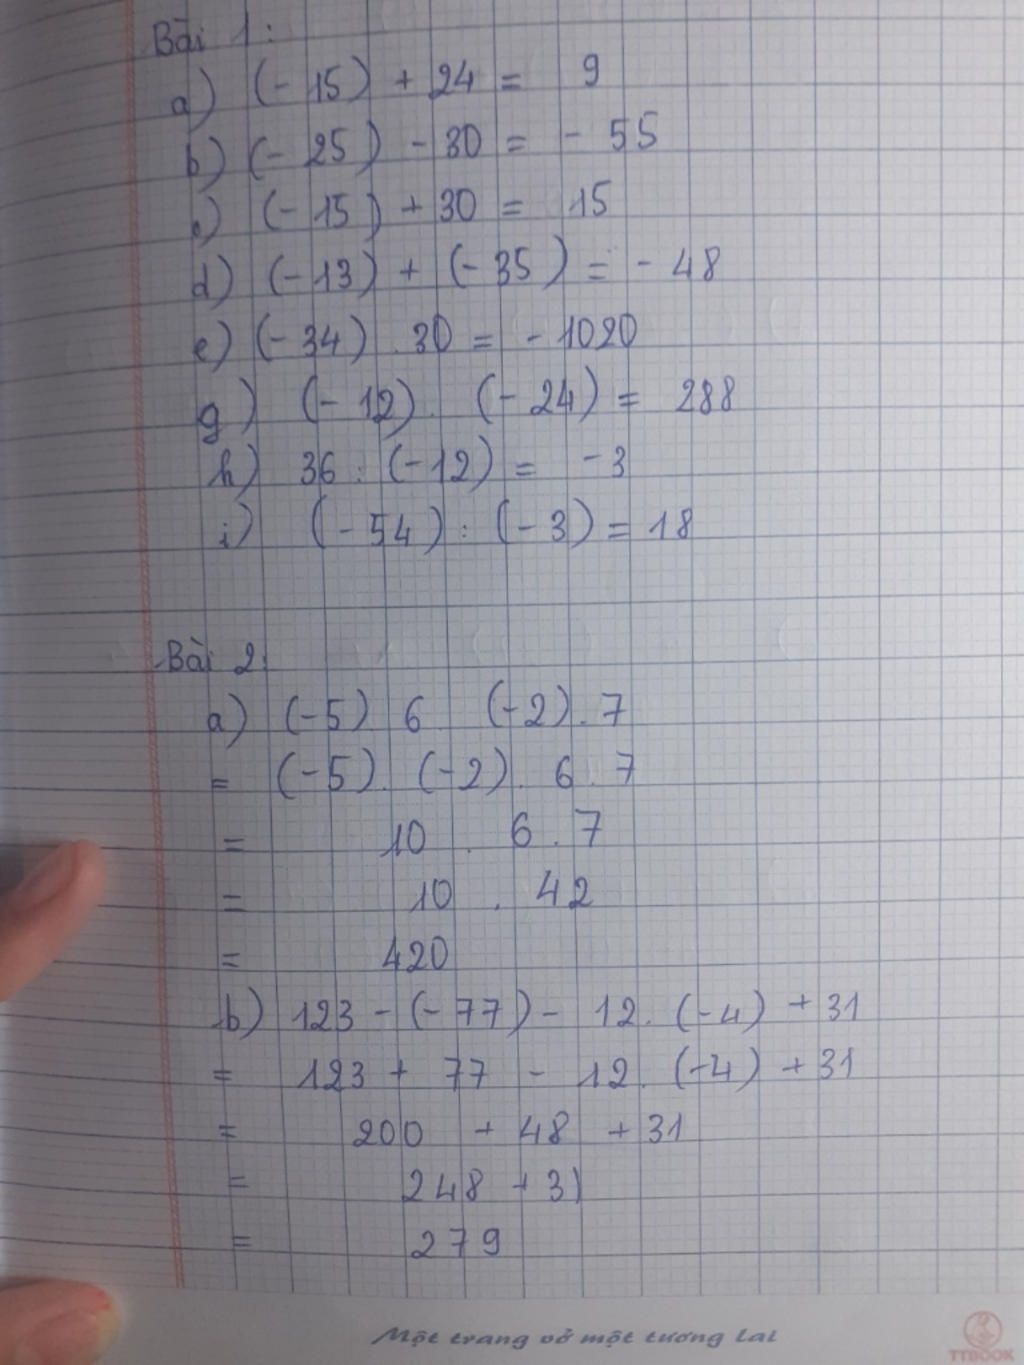 Bài 1:
a) (-15) + 24 = 9
b) (-25) - 30 = - 55
c) (-15) + 30 = 15
d) (-13) + (-35) = - 48
e) (-34) . 30 = - 1020
g) (-12) . (-24) = 288
h) 36 : (-12) = -3
i) (-54) : (-3) = 18
Bài 2:
a) (-5) . 6 . (-2) . 7
= (-5) . (-2) . 6 . 7
= 10 . 6 . 7
= 10 . 42
= 420
b) 123 - (-77) - 12 . (-4) + 31
= 123 + 77 - 12 . (-4) + 31
= 200 + 48 + 31
= 248 + 31
= 279
Một trang vở một tương lai
TTBOOK